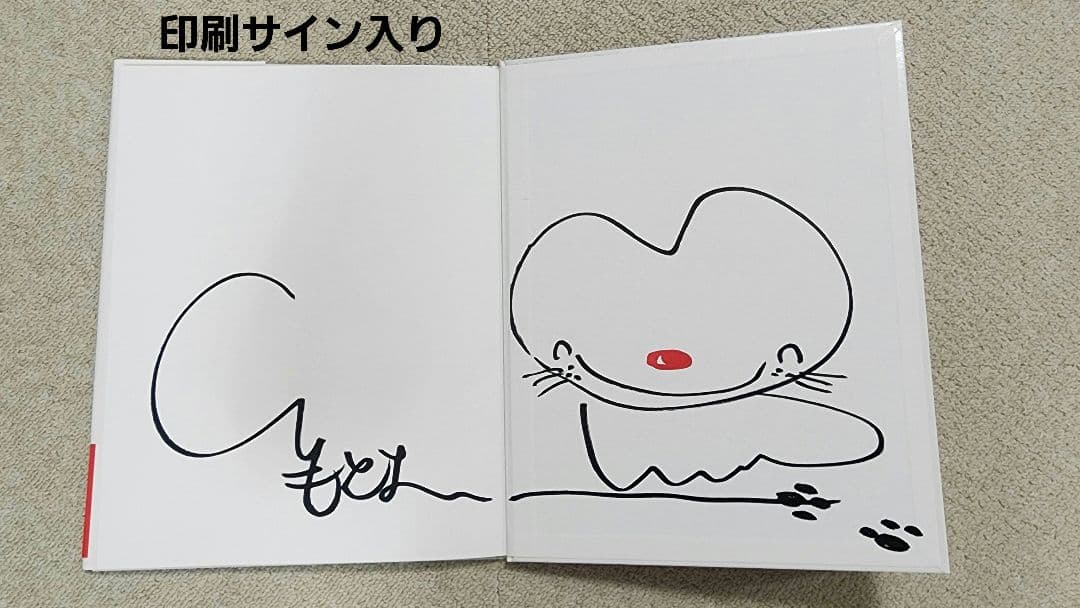 印刷サイン入り
もとよ